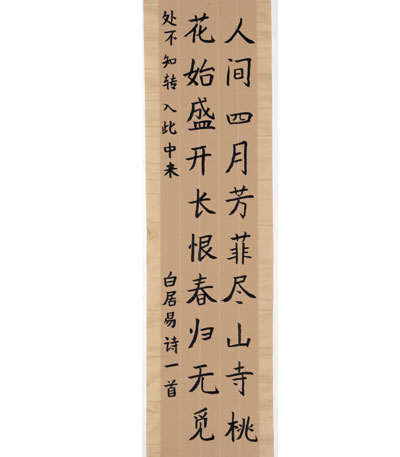 人间四月芳菲尽山寺桃
花始盛开长恨春归无觅
处不知转入此中来
白居易诗一首